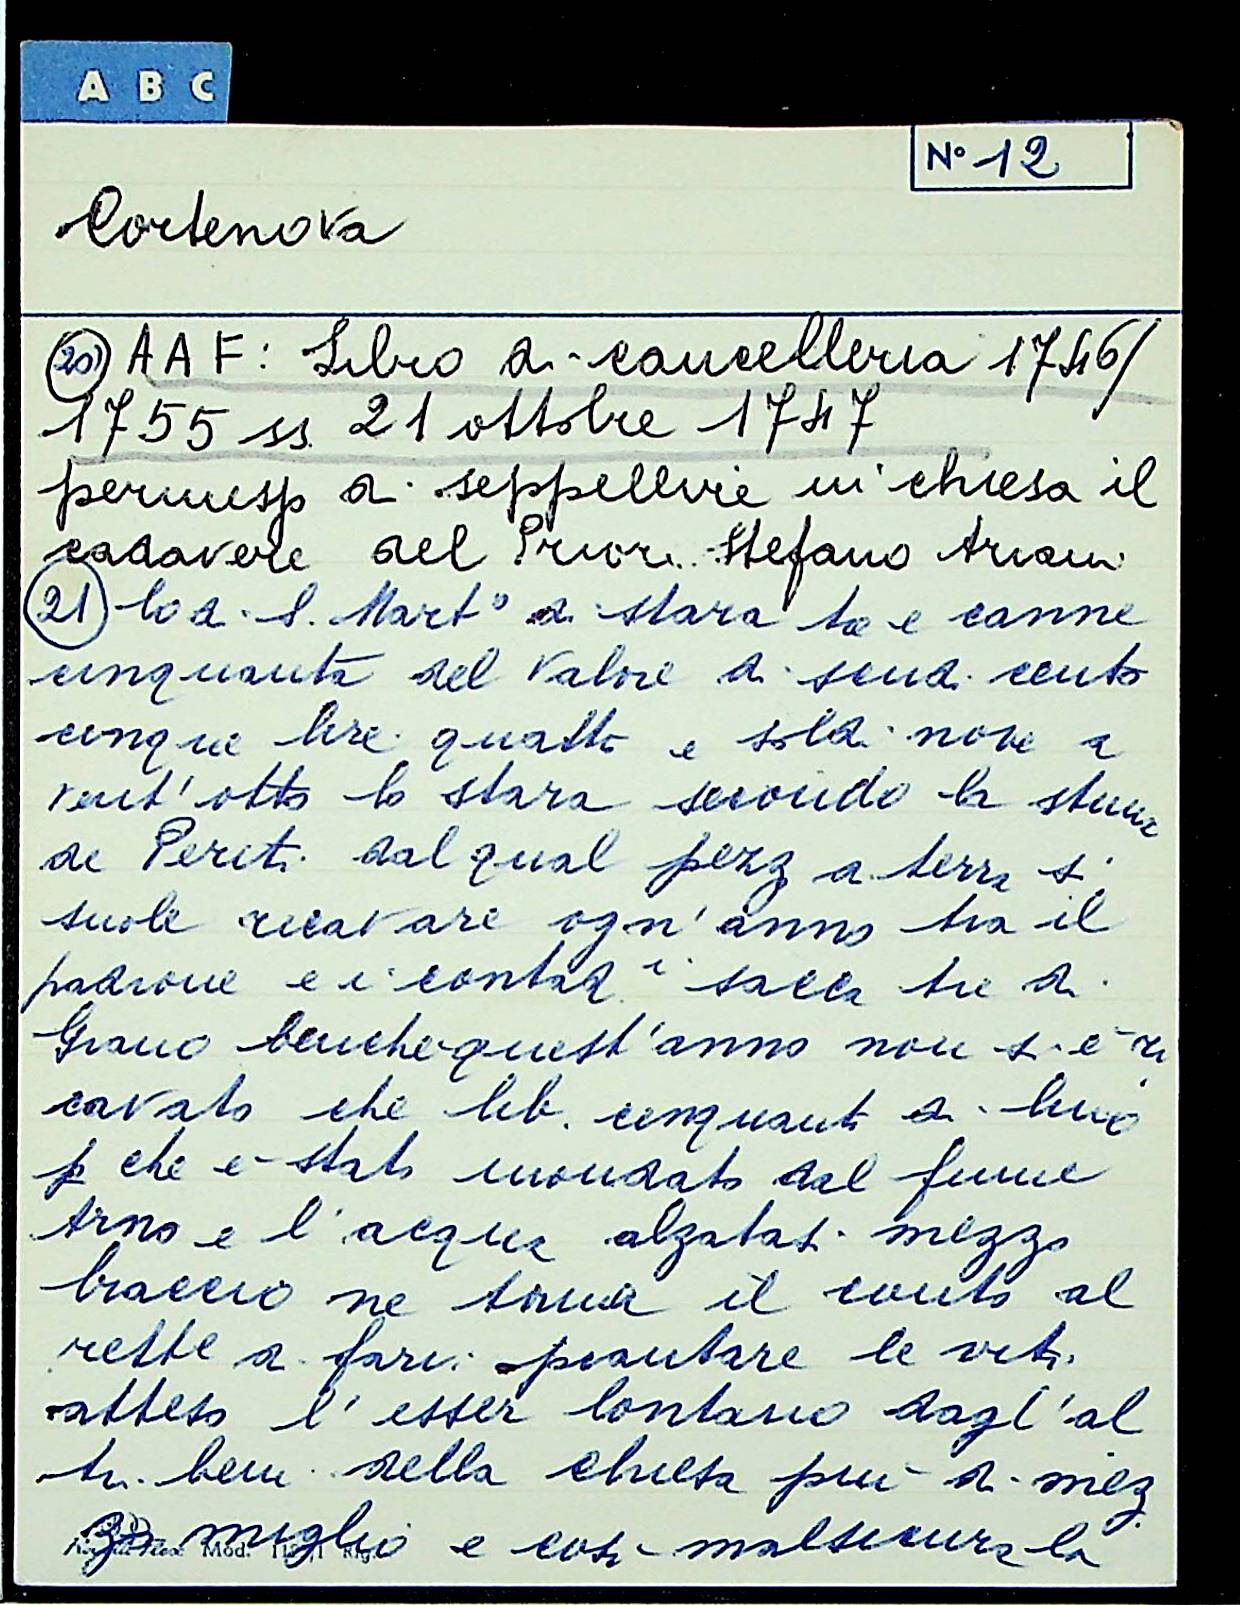 A B C
N° 12
Cortenova
20) AAF: Libro di cancelleria 1746/
1755 ss. 21 ottobre 1747
permesso di seppellire in chiesa il
cadavere del Priore Stefano
21 S. Mart° di stara tre e canne
cinquanta del valore di scudi cento
cinque lire quatto e soldi nove a
vent'otto lo stara secondo la stima
de Periti dal qual pezzo di terra si
suole ricavare ogn'anno tra il
padrone e i contad.i sacca tre di
Grano benche quest'anno non si è ri
cavato che lib. cinquanti di lino
p che è stato inondato dal fiume
Arno e l'acqua alzatasi mezzo
braccio ne torna il conto al
rettore di farvi piantare le viti
atteso l'esser lontano dagl'al
tri beni della chiesa più di mez
zo miglio e così malsicura la
Mod.